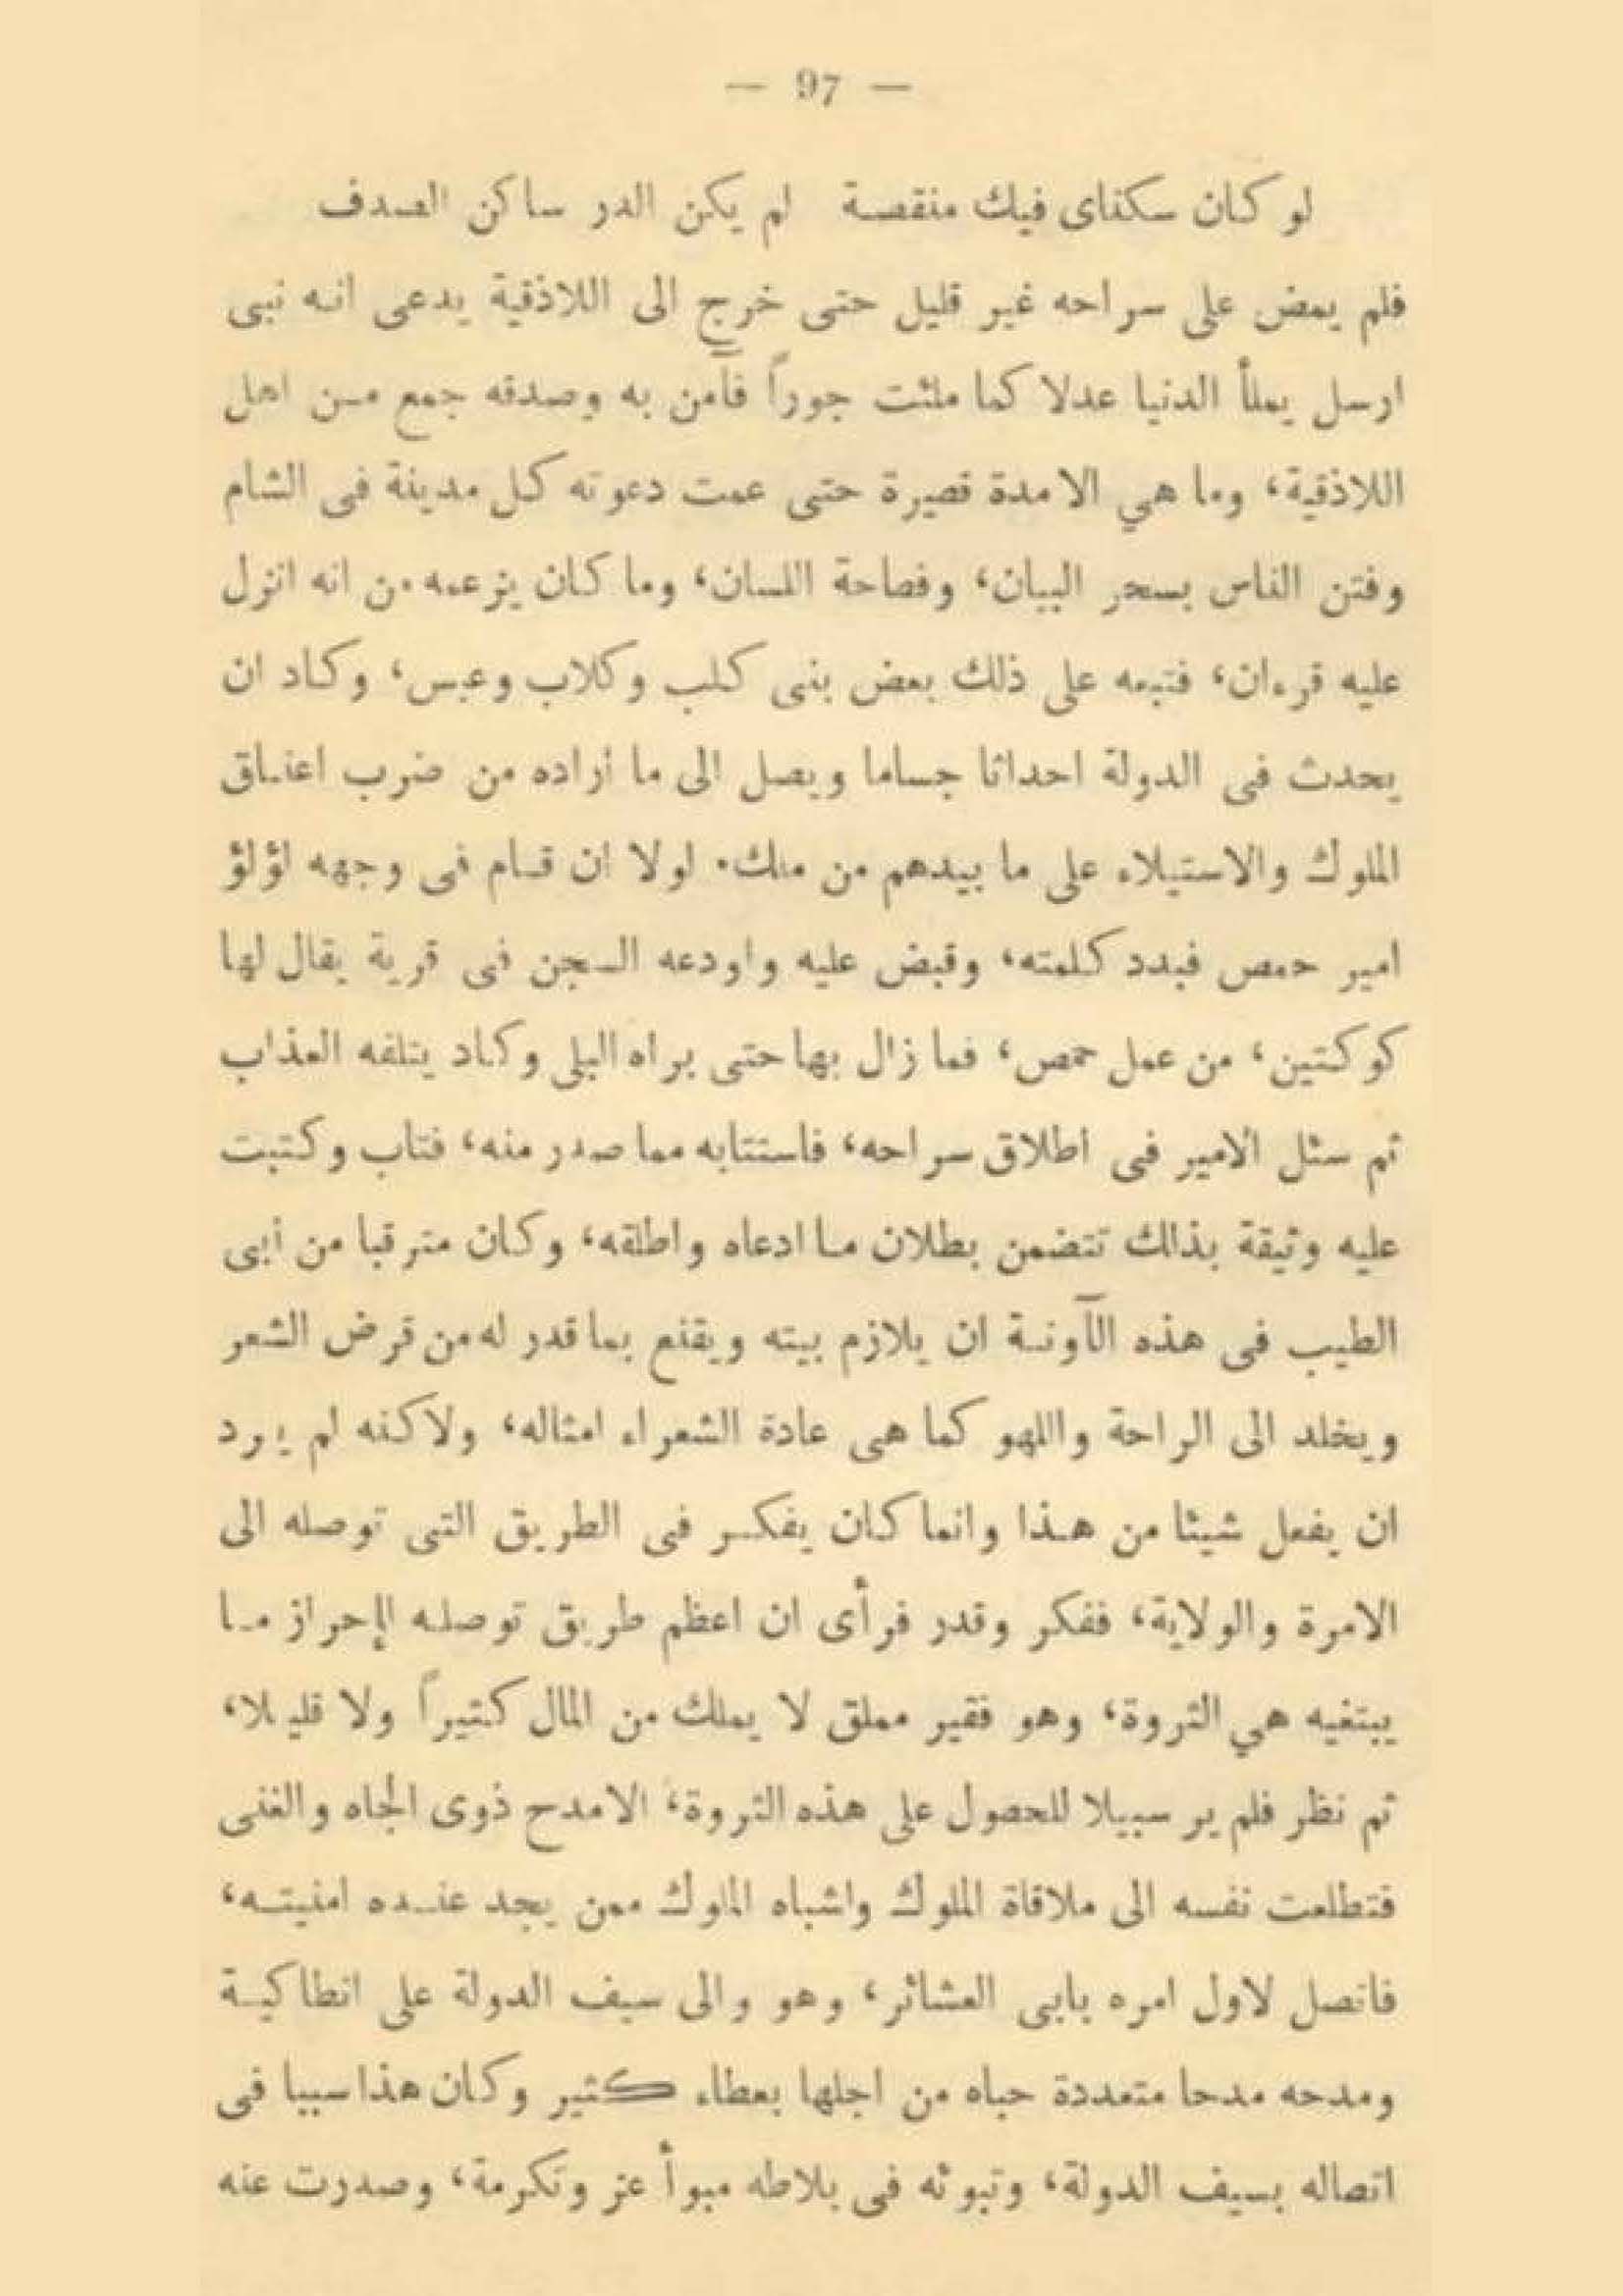 — 97 —
لو كان سكناى فيك منقصة لم يكن الدر ساكن الصدف
فلم يمض على سراحه غير قليل حتى خرج الى اللاذقية يدعى انه نبى
ارسل يملأ الدنيا عدلا كما ملئت جوراً فآمن به وصدقه جمع من اهل
اللاذقية، وما هي الا مدة قصيرة حتى عمت دعوته كل مدينة فى الشام
وفتن الناس بسحر البيان، وفصاحة اللسان، وما كان يزعمه من انه انزل
عليه قرءان، فتبعه على ذلك بعض بنى كلب وكلاب وعبس، وكاد ان
يحدث فى الدولة احداثا جساما ويصل الى ما أراده من ضرب اعناق
الملوك والاستيلاء على ما بيدهم من ملك. لولا ان قام فى وجهه لؤلؤ
امير حمص فبدد كلمته، وقبض عليه واودعه السجن فى قرية يقال لها
كوكتين، من عمل حمص، فما زال بها حتى براه البلى وكاد يتلفه العذاب
ثم سئل الامير فى اطلاق سراحه، فاستتابه مما صدر منه، فتاب وكتبت
عليه وثيقة بذالك تتضمن بطلان ما ادعاه واطلقه، وكان مترقبا من أبى
الطيب فى هذه الآونة ان يلازم بيته ويقنع بما قدر له من قرض الشعر
ويخلد الى الراحة واللهو كما هى عادة الشعراء امثاله، ولاكنه لم يرد
ان يفعل شيئا من هذا وانما كان يفكر فى الطريق التى توصله الى
الامرة والولاية، ففكر وقدر فرأى ان اعظم طريق توصله لإحراز ما
يبتغيه هي الثروة، وهو فقير مملق لا يملك من المال كثيراً ولا قليلا،
ثم نظر فلم ير سبيلا للحصول على هذه الثروة، الا مدح ذوى الجاه والغنى
فتطلعت نفسه الى ملاقاة الملوك واشباه الملوك ممن يجد عنده امنيته،
فاتصل لاول امره بابى العشائر، وهو والى سيف الدولة على انطاكية
ومدحه مدحا متعددة حباه من اجلها بعطاء كثير وكان هذا سببا فى
اتصاله بسيف الدولة، وتبوئه فى بلاطه مبوأ عز وتكرمة، وصدرت عنه